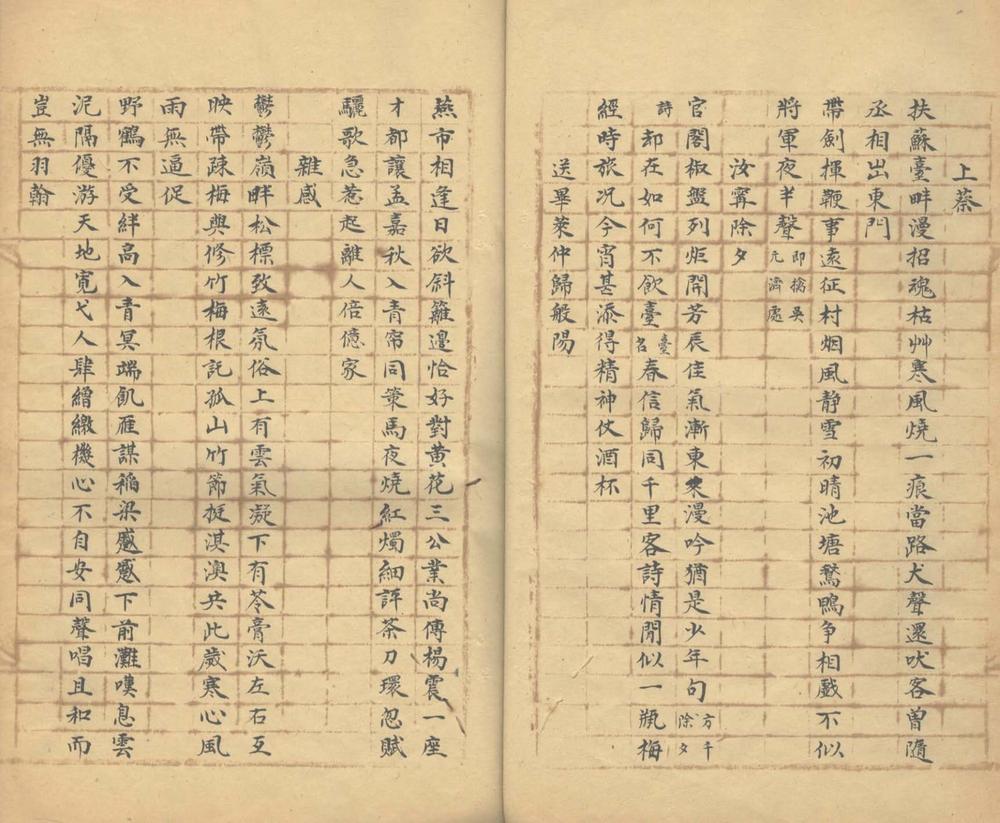 上蔡
扶蘇臺畔漫招魂枯艸寒風燒一痕當路犬聲還吠客曾隨
丞相出東門
帶劍揮鞭事遠征村烟風靜雪初晴池塘鶩鴨争相戲不似
將軍夜半聲即擒吳元濟處
汝寧除夕
官閣椒盤列炬開芳辰佳氣漸東來漫吟猶是少年句方千除夕
詩却在如何不飲臺臺名春信歸同千里客詩情閒似一瓶梅
經時旅况今宵甚添得精神仗酒杯
送畢萊仲歸般陽
燕市相逢日欲斜籬邉恰好對黄花三公業尚傳楊震一座
才都讓孟嘉秋入青帘同策馬夜燒紅燭細評茶刀環忽賦
驪歌急惹起離人倍億家
雜感
鬱鬱嶺畔松標致遠氛俗上有雲氣凝下有苓膏沃左右互
映帶疎梅與修竹梅根託孤山竹節挺淇澳共此歲寒心風
雨無逼促
野鶴不受絆高入青冥端飢雁謀稻梁慼慼下前灘嘆息雲
泥隔優游天地寬弋人肆繒繳機心不自安同聲唱且和而
豈無羽翰